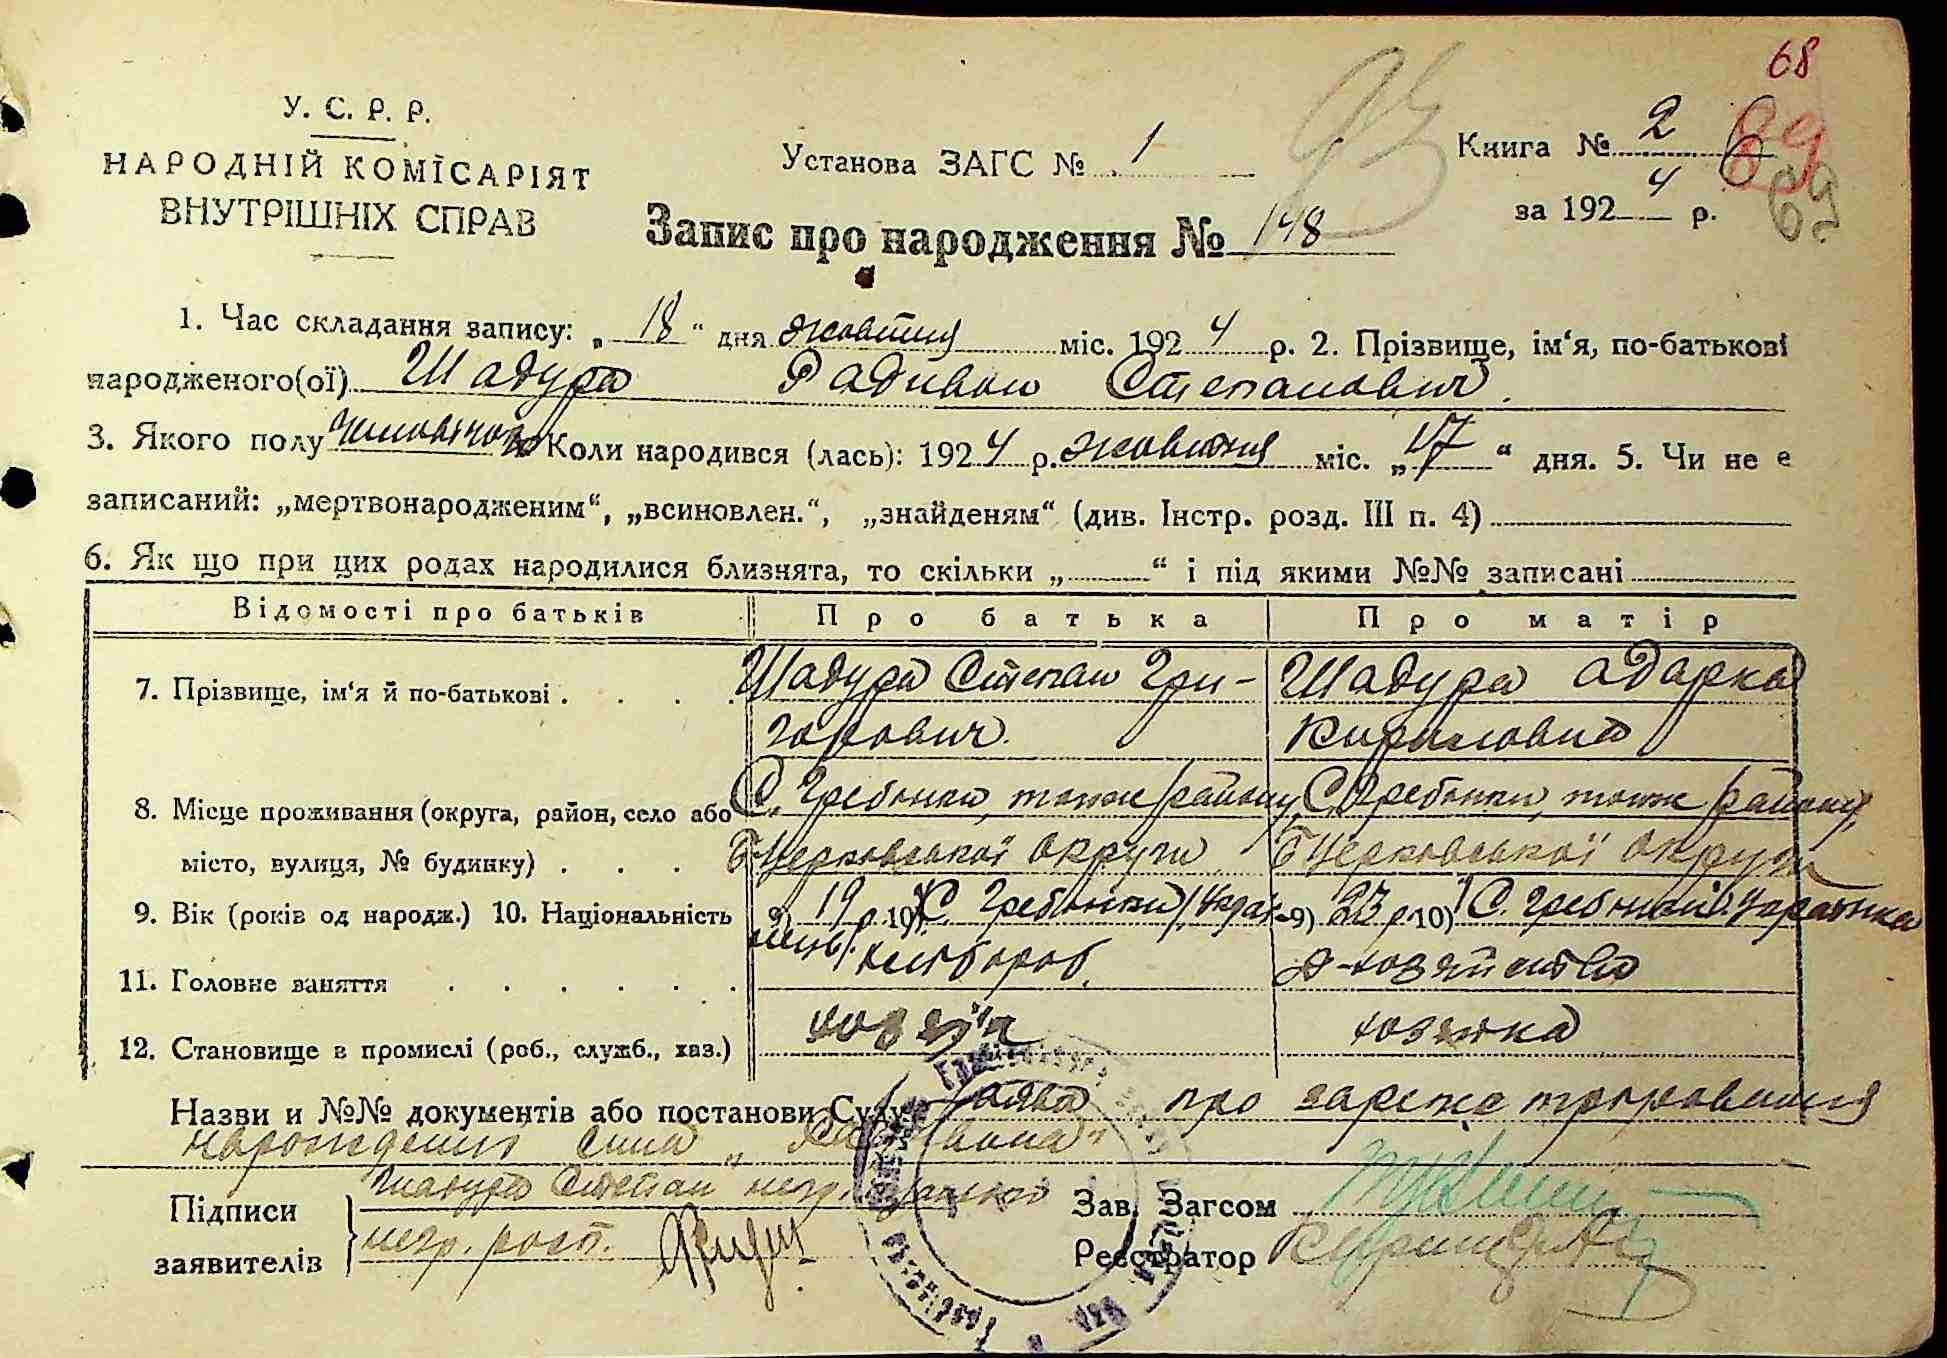 68
У. С. Р. Р.
НАРОДНІЙ КОМІСАРІЯТ
ВНУТРІШНІХ СПРАВ
Установа ЗАГС № 1
93
Книга № 2
89
69
за 1924 р.
Запис про народження № 148
1. Час складання запису: „18“ дня жовтня міс. 1924 р. 2. Прізвище, ім‘я, по-батькові
народженого(ої) Шадура Радивон Степанович.
3. Якого полу Коли народився (лась): 1924 р. жовтня міс. „17“ дня. 5. Чи не е
записаний: „мертвонародженим“, „всиновлен.“, „знайденям“ (див. Інстр. розд. III п. 4)
6. Як що при цих родах народилися близнята, то скільки „ “ і під якими №№ записані
Відомості про батьків Про батька Про матір
7. Прізвище, ім‘я й по-батькові Шадура Степан Гри- Шадура Адарка
горович. Кириловна
8. Місце проживання (округа, район, село або С. Гребонки, тож району, С. Гребонки, тож району,
місто, вулиця, № будинку) Б Церковської округи Б Церковської округи
9. Вік (років од народж.) 10. Національність 9) 19 р. 10) С. Гребінки / Украї- 9) 23 р 10) С. Гребінки Українка
нець/. хлібороб.
11. Головне заняття д-хозяйство
12. Становище в промислі (роб., служб., хаз.) хозяїн хозяйка
Назви и №№ документів або постанови Суду Заява про зарегистрировання
нарождения сина „Радивона“
Підписи заявителів Шадура Степан негр.
негр. росп.
Зав. Загсом
Реєстратор